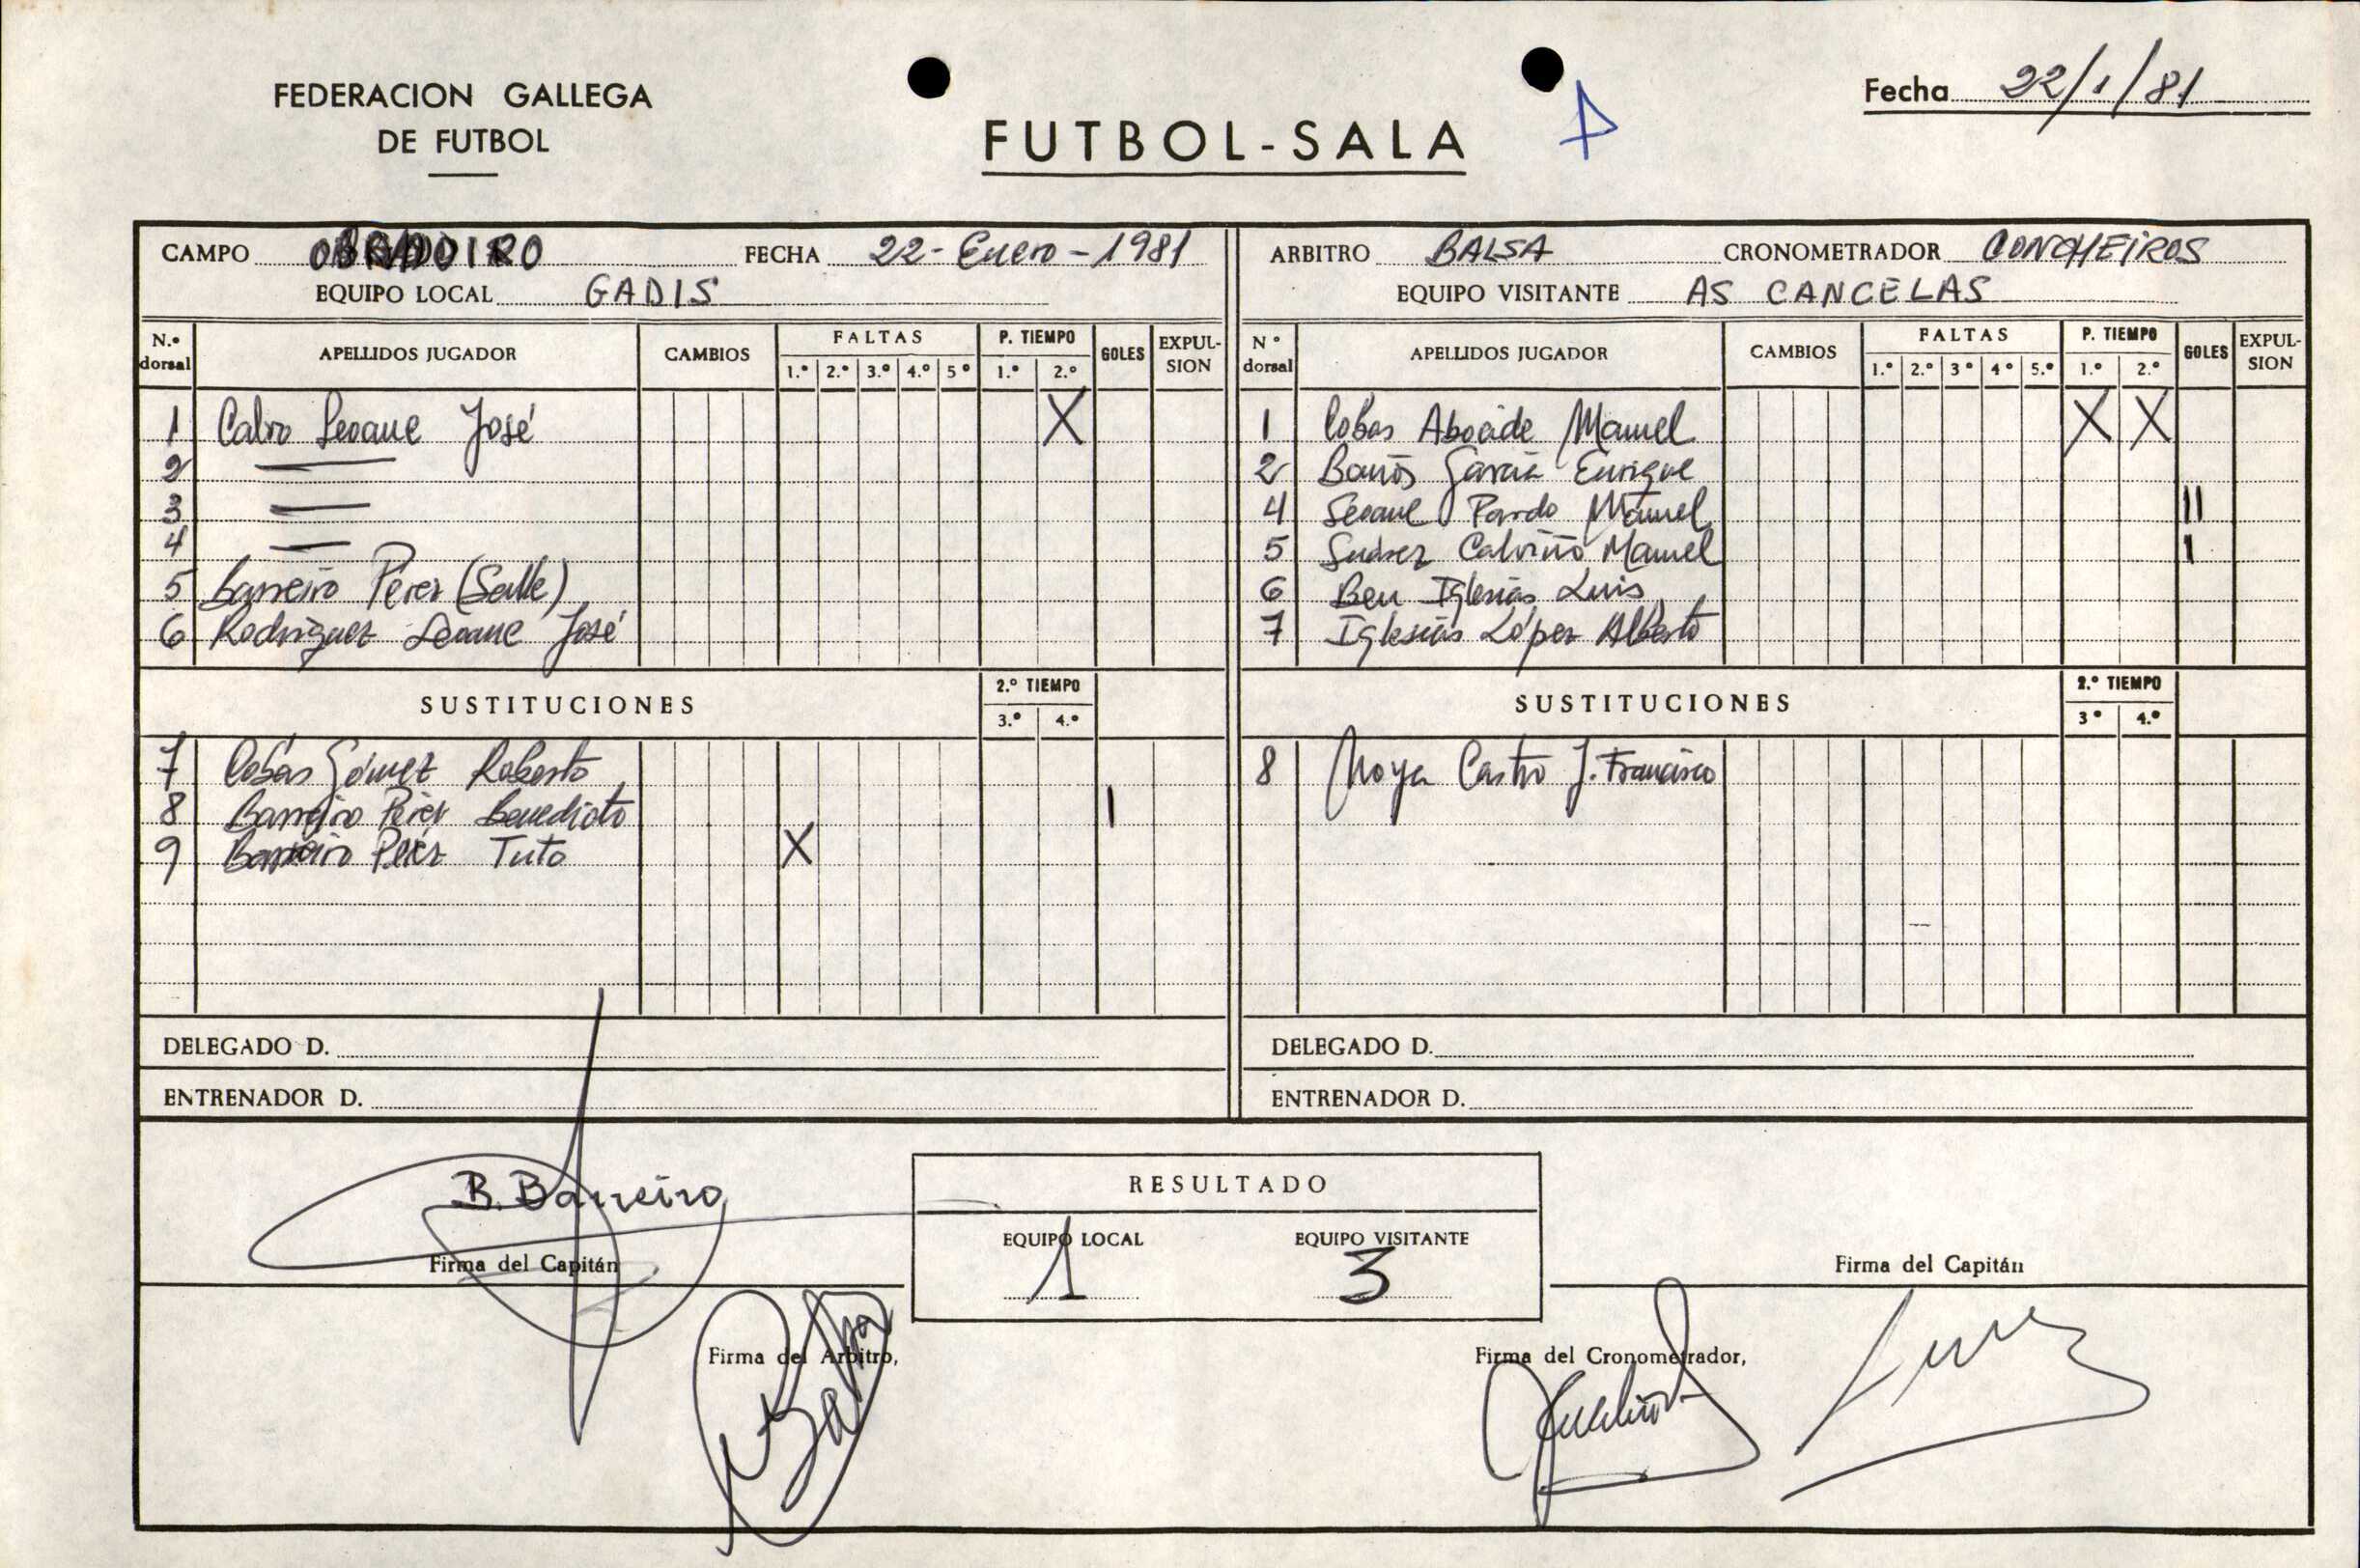 FEDERACION GALLEGA
DE FUTBOL
FUTBOL-SALA
A
Fecha 22/1/81
CAMPO OBRADOIRO FECHA 22-Enero-1981
EQUIPO LOCAL GADIS
ARBITRO BALSA CRONOMETRADOR CONCHEIROS
EQUIPO VISITANTE AS CANCELAS
N.º dorsal APELLIDOS JUGADOR CAMBIOS FALTAS P. TIEMPO GOLES EXPULSION
1.º 2.º 3.º 4.º 5º 1.º 2.º
1 Calvo Seoane José X
2 —
3 —
4 —
5 Barreiro Pérez (Salle)
6 Rodriguez Seoane José
SUSTITUCIONES 2.º TIEMPO
3.º 4.º
7 Cobas Gómez Roberto
8 Barreiro Pérez Benedicto I
9 Barreiro Pérez Tuto X
DELEGADO D.
ENTRENADOR D.
Nº dorsal APELLIDOS JUGADOR CAMBIOS FALTAS P. TIEMPO GOLES EXPULSION
1.º 2.º 3º 4º 5.º 1.º 2.º
1 Cobas Manuel X X
2 García Enrique
4 Seoane Pardo Manuel II
5 Suárez Calviño Manuel I
6 Ben Iglesias Luis
7 Iglesias López Alberto
SUSTITUCIONES 2.º TIEMPO
3º 4.º
8 Moya Castro J. Francisco
DELEGADO D.
ENTRENADOR D.
B. Barreiro
Firma del Capitán
RESULTADO
EQUIPO LOCAL EQUIPO VISITANTE
1 3
Firma del Capitán
Firma del Arbitro,
Balsa
Firma del Cronometrador,